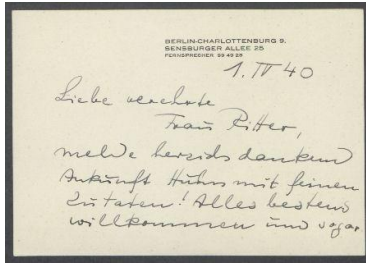 BERLIN-CHARLOTTENBURG 9,
SENSBURGER ALLEE 25
FERNSPRECHER 99 49 28
1. IV 40
Liebe verehrte
Frau Ritter,
melde herzlichst dankend
Ankunft Huhns mit feinen
Zutaten! Alles bestens
willkommen und sogar